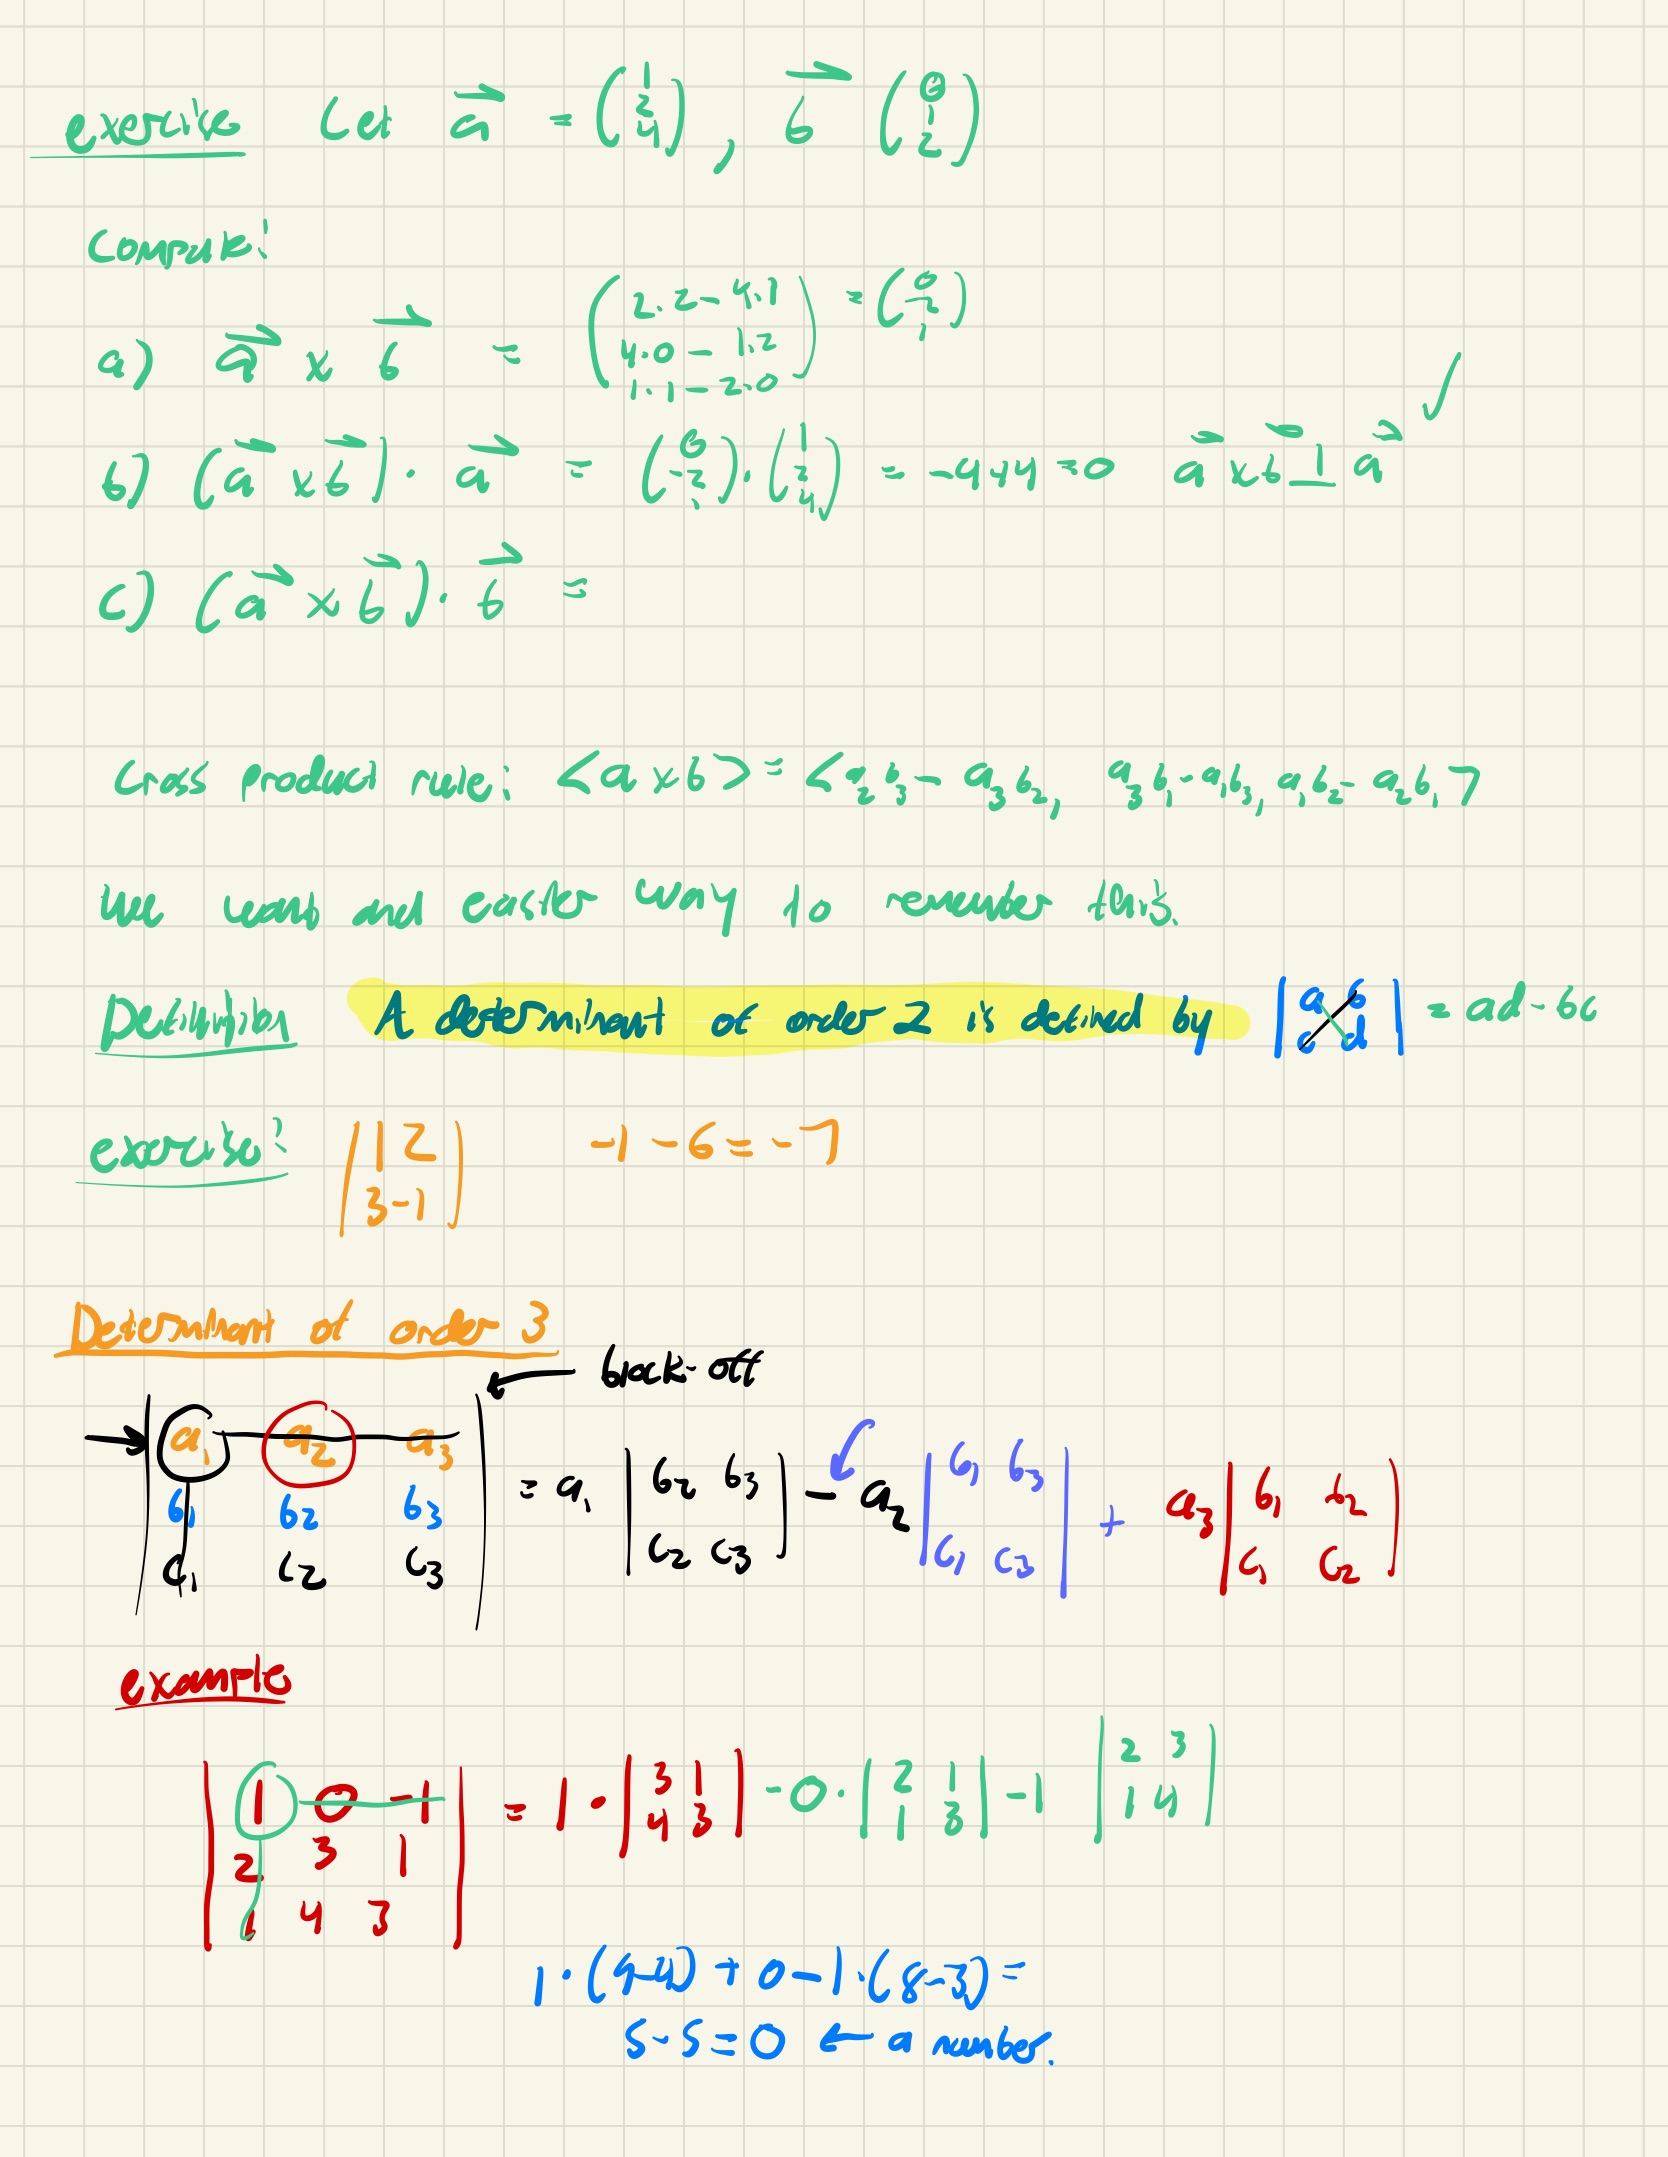 exercise Let a⃗ = (1 2 4), b⃗ (0 1 2)
Compute:
a) a⃗ × b⃗ = (2·2-4·1 4·0-1·2 1·1-2·0) = (0 -2 1)
b) (a⃗ × b⃗)· a⃗ = (0 -2 1)·(1 2 4) = -4+4=0 a⃗ × b⃗ ⊥ a⃗ ✓
c) (a⃗ × b⃗)· b⃗ =
Cross product rule: <a × b> = <a₂b₃ - a₃b₂, a₃b₁ - a₁b₃, a₁b₂ - a₂b₁>
We want and easier way to remember this.
Definition A determinant of order 2 is defined by |a b| = ad-bc
|c d|
exercise: |1 2| -1-6=-7
|3 -1|
Determinant of order 3
block-off
|a₁ a₂ a₃|
|b₁ b₂ b₃| = a₁ |b₂ b₃| - a₂ |b₁ b₃| + a₃ |b₁ b₂|
|c₁ c₂ c₃| |c₂ c₃| |c₁ c₃| |c₁ c₂|
example
|1 0 -1| = 1 · |3 1| -0· |2 1| -1 |2 3|
|2 3 1| |4 3| |1 3| |1 4|
|1 4 3|
1·(9-4) + 0-1·(8-3) =
5-5=0 ← a number.